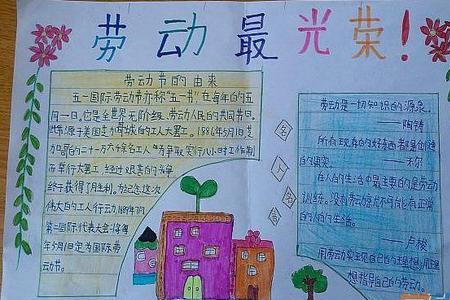 劳动最光荣！
劳动节的由来
五一国际劳动节亦称"五一节"，在每年的五
月一日。它是全世界无阶级、劳动人民的共同节日。
此节源于美国芝加哥城的工人大罢工。1886年5月1日芝
加哥的二十一万六千余名工人为争取实行八小时工作制
而举行大罢工，经过艰苦的斗争
终于获得了胜利。为纪念这次
伟大的工人行动，1889年的
第二国际代表大会将每
年5月1日定为国际劳
动节。
名人名言
劳动是一切知识的源泉。
——陶铸
所有现存的好东西都是创造
的果实。——米尔
在人的生活中最主要的是劳动
训练。没有劳动就不可能有正常
的人的生活。
——卢梭
用劳动来实现自己的理想，用理
想指导自己的劳动。